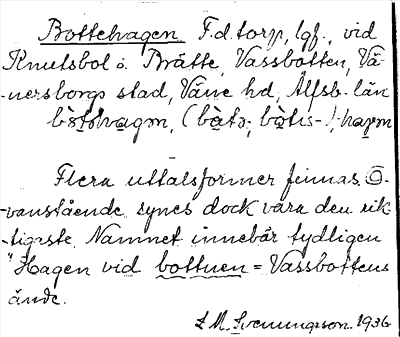 Bottehagen F.d. torp, lgf., vid
Knutsbol o. Brätte, Vassbotten, Vä-
nersborgs stad, Väne hd, Älfsb. län
Flera uttalsformer finnas. O-
vanstående synes dock vara den rik-
tigaste. Namnet innebär tydligen
"Hagen vid bottnen = Vassbottens
ände.
Svenungsson. 1936.